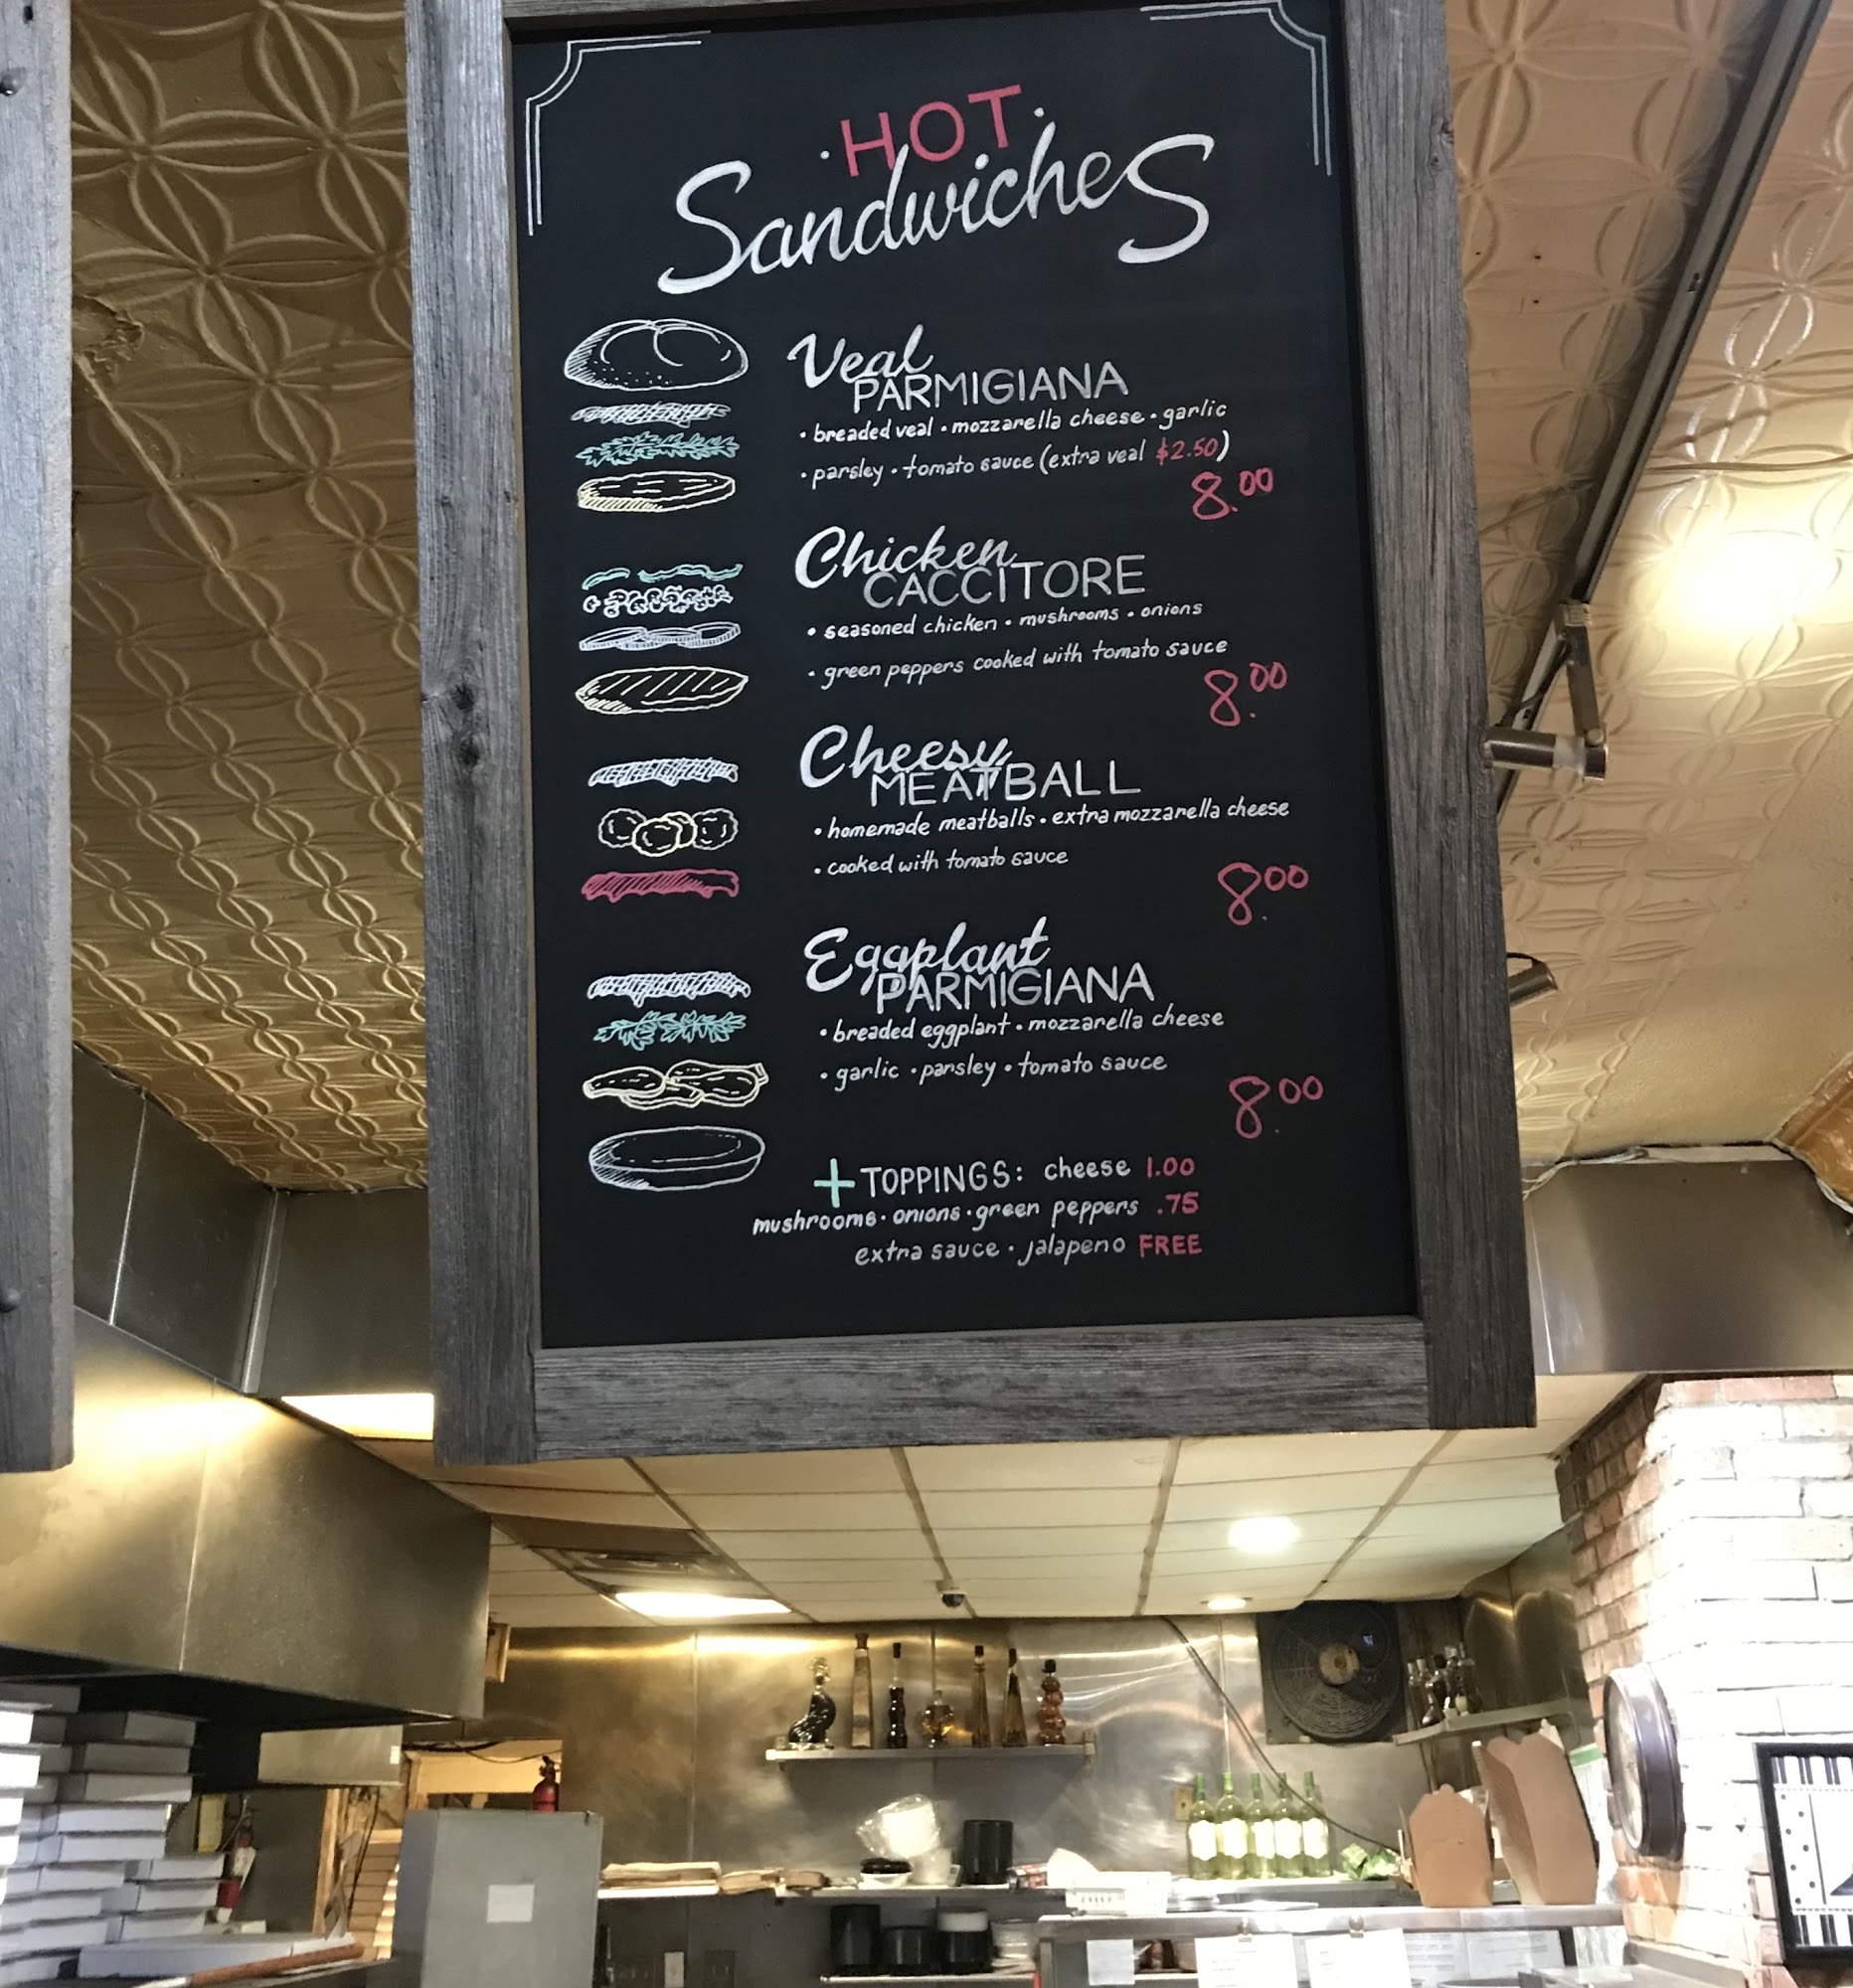 · HOT ·
SandwicheS
Veal
PARMIGIANA
· breaded veal · mozzarella cheese · garlic
· parsley · tomato sauce (extra veal $2.50)
8.00
Chicken
CACCITORE
· seasoned chicken · mushrooms · onions
· green peppers cooked with tomato sauce
8.00
Cheesy
MEATBALL
· homemade meatballs · extra mozzarella cheese
· cooked with tomato sauce
8.00
Eggplant
PARMIGIANA
· breaded eggplant · mozzarella cheese
· garlic · parsley · tomato sauce
8.00
+ TOPPINGS: cheese 1.00
mushrooms · onions · green peppers .75
extra sauce · jalapeno FREE